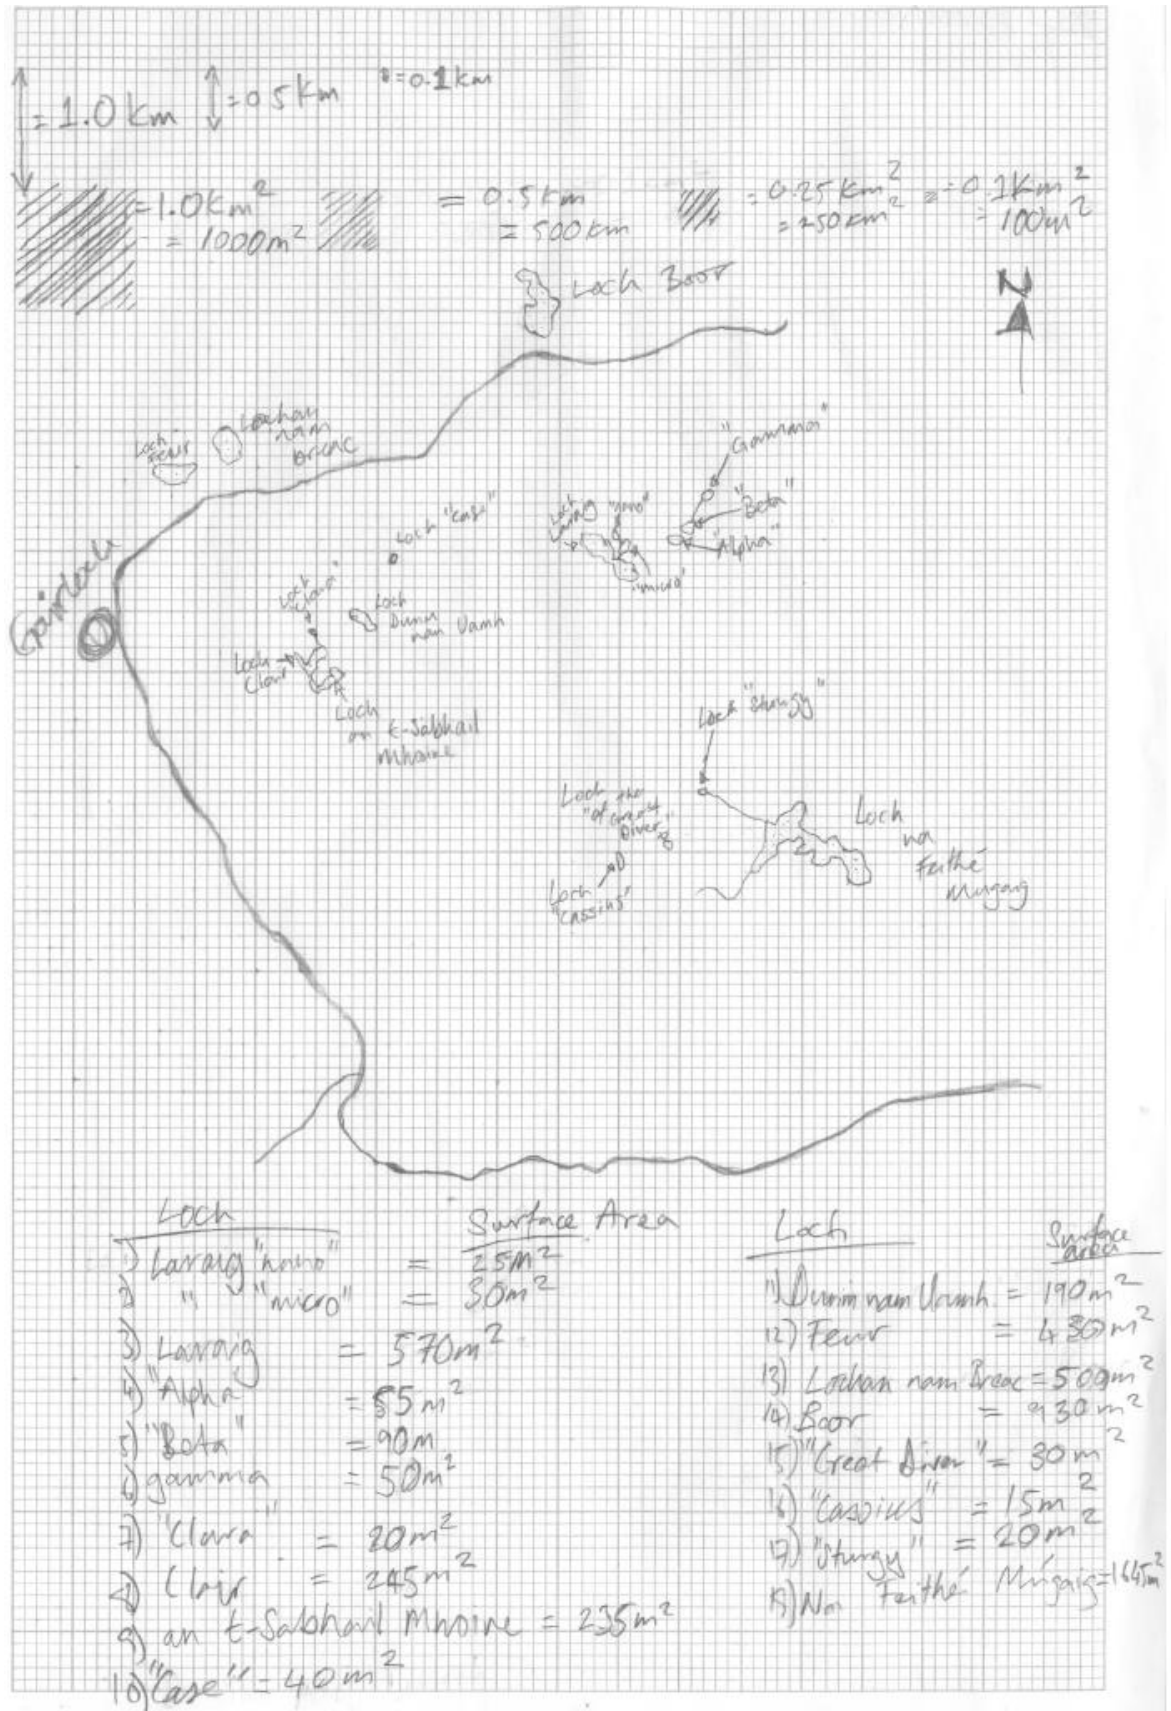 = 1.0 km
= 0.5 km
= 0.1 km
= 1.0 km²
= 1000m²
= 0.5 km
= 500 km
= 0.25 km²
= 250 km²
= 0.1 km²
= 100m²
N
Loch Boor
Loch
Feur
Lochan
nam
breac
"Gamma"
"Beta"
"Alpha"
Loch
Laraig
"nano"
"micro"
Loch "Case"
Gairloch
Loch
"Clara"
Loch
Durin
nan Uamh
Loch
Clair
Loch
an t-Sabhail
Mhoine
Loch "Sturgy"
Loch the
"of Great
Diver"
Loch
"Cassius"
Loch
na
Feithé
Mugaig
Loch Surface Area
1) Laraig "nano" = 25m²
2) " "micro" = 30m²
3) Laraig = 570m²
4) "Alpha" = 55m²
5) "Beta" = 90m
6) gamma = 50m²
7) "Clara" = 20m²
8) Clair = 245m²
9) an t-Sabhail Mhoine = 235m²
10) "Case" = 40m²
Loch Surface area
11) Durin nam Uamh = 190m²
12) Feur = 430m²
13) Lochan nam Breac = 500m²
14) Boor = 930m²
15) "Great Diver" = 30m²
16) "Cassius" = 15m²
17) "Sturgy" = 20m²
18) Na Feithé Múgaig = 1645m²